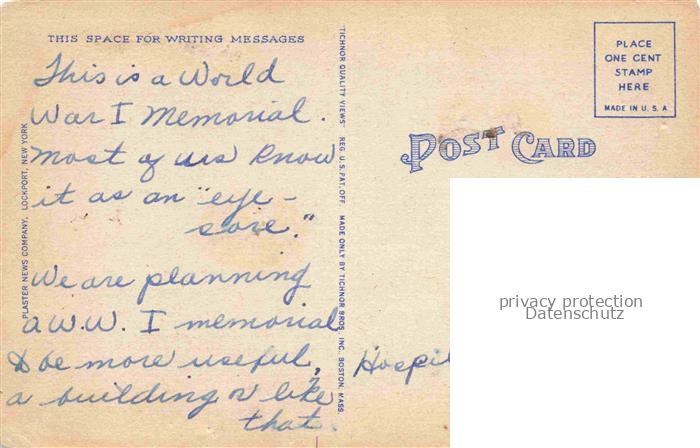 THIS SPACE FOR WRITING MESSAGES
This is a World
War I Memorial.
Most of us know
it as an "eye-
sore."
We are planning
a W.W. I memorial
to be more useful,
a building or like
that.
PLASTER NEWS COMPANY, LOCKPORT, NEW YORK
"TICHNOR QUALITY VIEWS" REG. U. S. PAT. OFF. MADE ONLY BY TICHNOR BROS. INC., BOSTON, MASS.
POST CARD
PLACE
ONE CENT
STAMP
HERE
MADE IN U. S. A.
privacy protection
Datenschutz